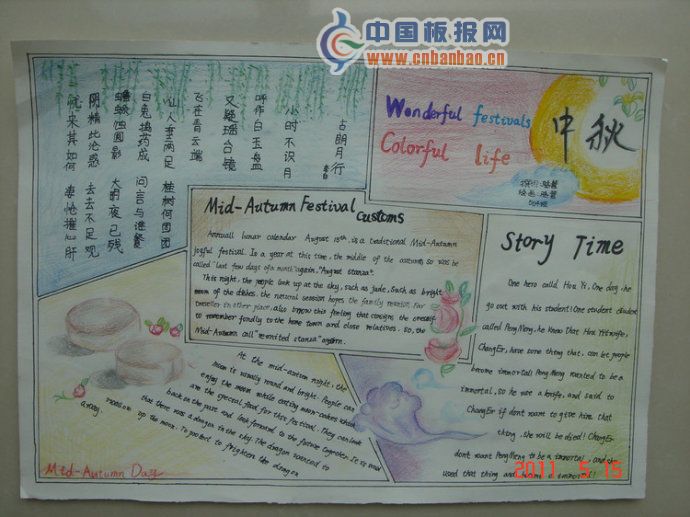 中国板报网
www.cnbanbao.cn
古朗月行
李白
小时不识月
呼作白玉盘
又疑瑶台镜
飞在青云端
仙人垂两足 桂树何团团
白兔捣药成 问言与谁餐
蟾蜍蚀圆影 大明夜已残
阴精此沦惑 去去不足观
忧来其如何 凄怆摧心肝
Wonderful festivals
Colorful life
中秋
Mid-Autumn Festival
Customs
Annuall lunar calendar August 15th, is a traditional Mid-Autumn
joyful festival. In a year at this time, the middle of the autumn, so was be
called "last few days of a month" again, "August stanza".
This night, the people look up at the sky, such as jade, such as bright
moon of the dishes, the natural session hopes the family reunion. Far
traveller in other place, also borrow this feeling that consigns the oneself
to remember fondly to the home town and close relatives. So, the
Mid-Autumn call "reunited stanza" again.
Story Time
One hero called Hou Yi, One day, he
go out with his student! One student student
called PengMeng, he know that Hou Yi wife,
ChangEr, have some thing that, can let people
become immortal! PengMeng wanted to be a
immortal, so he use a knife, and said to
ChangEr if dont want to give him that
thing, she will be died! ChangEr
dont want PengMeng to be a immortal, and
used that thing and immortal!
At the mid-autumn night, the
moon is usually round and bright. People can
enjoy the moon while eating moon-cakes which
are the special food for this festival. They can look
back on the past and look forward to the future together. It is said
that there was a dragon in the sky. The dragon wanted to
up the moon. To protect to frighten the dragon
away.
Mid-Autumn Day
2011 5 15